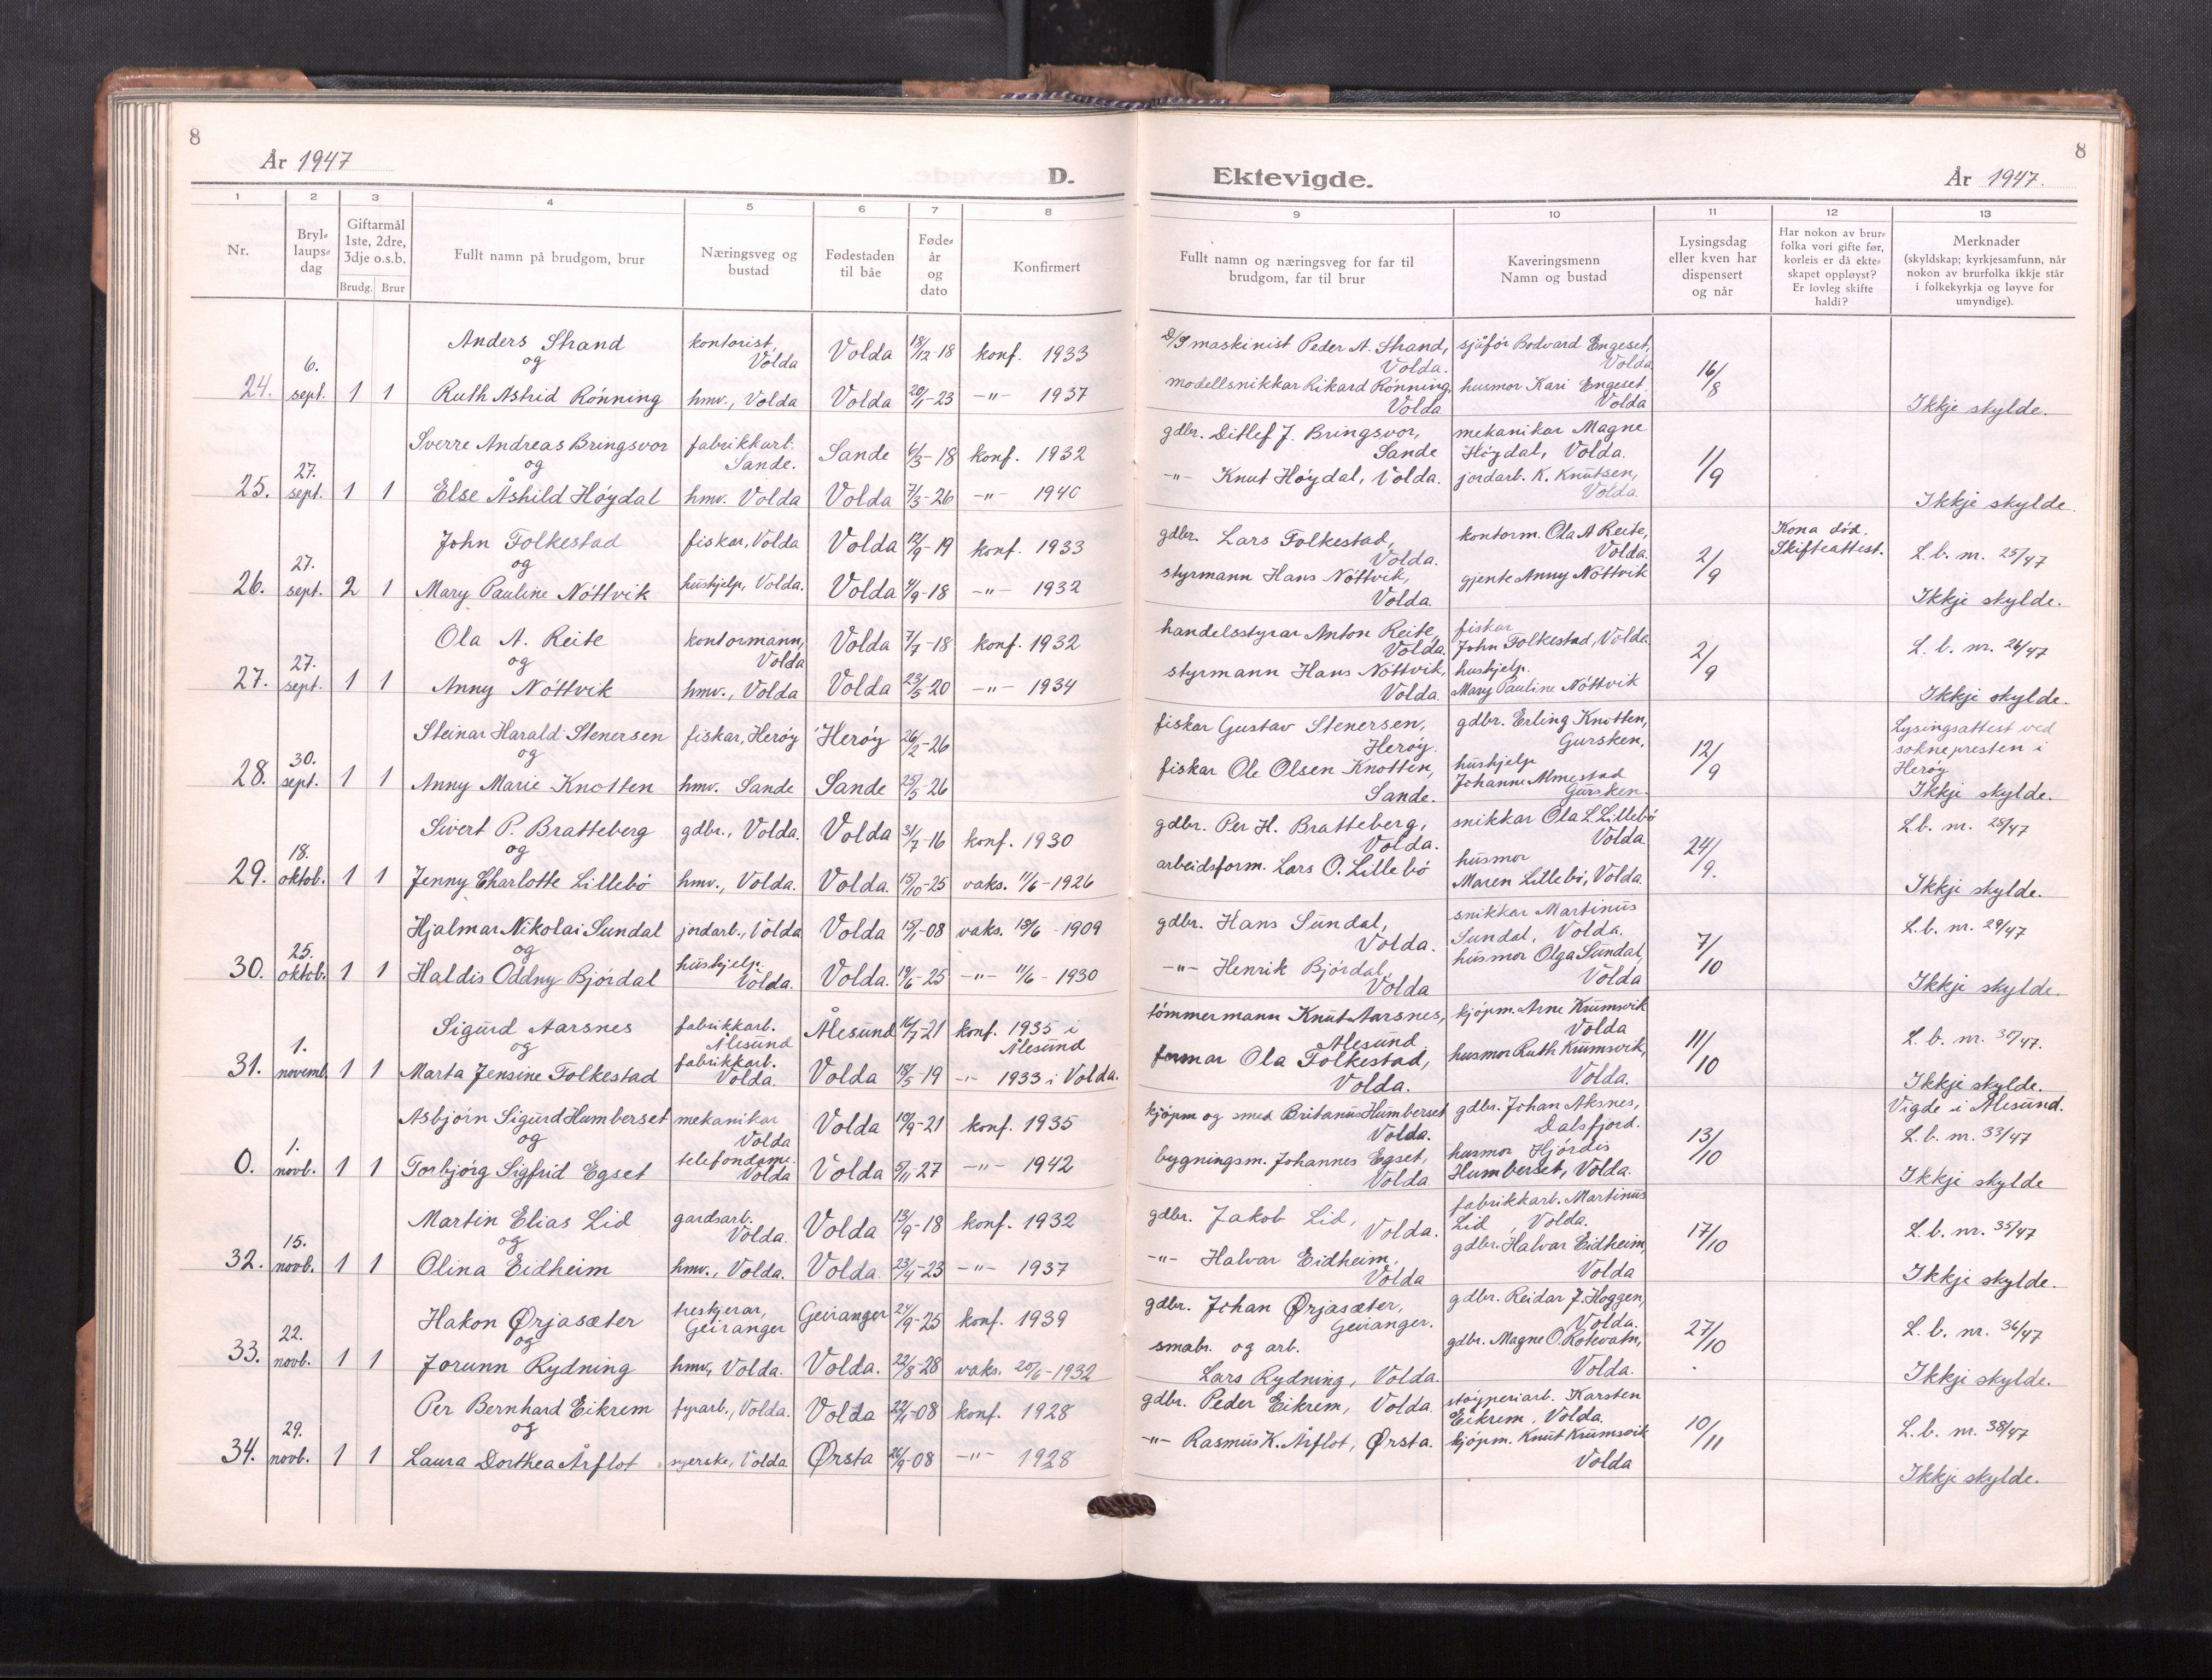 8
År 1947
D.
1 2 3 4 5 6 7 8
Nr.
Bryl-
laups-
dag
Giftarmål
1ste, 2dre,
3dje o.s.b.
Brudg. Brur
Fullt namn på brudgom, brur
Næringsveg og
bustad
Fødestaden
til båe
Føde-
år
og
dato
Konfirmert
Anders Strand kontorist, Volda Volda 18/12-18 konf. 1933
og
24. 6. sept. 1 1 Ruth Astrid Rönning hmv., Volda Volda 20/1-23 -"- 1937
Sverre Andreas Bringsvor fabrikkarb. Sande. Sande 6/3-18 konf. 1932
og
25. 27. sept. 1 1 Else Åshild Höydal hmv. Volda Volda 7/3-26 -"- 1940
John Folkestad fiskar, Volda Volda 12/9-19 konf. 1933
og
26. 27. sept. 2 1 Mary Pauline Nöttvik hushjelp, Volda. Volda 4/9-18 -"- 1932
Ola A. Reite kontormann, Volda Volda 7/7-18 konf. 1932
og
27. 27. sept. 1 1 Anny Nöttvik hmv., Volda Volda 23/5-20 -"- 1934
Steinar Harald Stenersen fiskar, Heröy Heröy 26/2-26
og
28. 30. sept. 1 1 Anny Marie Knotten hmv. Sande Sande 25/5-26
Sivert P. Bratteberg gdbr., Volda. Volda 31/7-16 konf. 1930
og
29. 18. oktob. 1 1 Jenny Charlotte Lillebö hmv., Volda. Volda. 15/10-25 vaks. 11/6-1926
Hjalmar Nikolai Sundal jordarb., Volda Volda 15/1-08 vaks. 18/6-1909
og
30. 25. oktob. 1 1 Haldis Oddny Björdal hushjelp. Volda. Volda. 19/6-25 -"- 11/6-1930
Sigurd Aarsnes fabrikkarb. Ålesund Ålesund 16/7-21 konf. 1935 i Ålesund
og
31. 1. novemb. 1 1 Marta Jensine Folkestad fabrikkarb. Volda. Volda 18/5-19 -"- 1933 i Volda.
Asbjörn Sigurd Humberset mekanikar Volda Volda 10/9-21 konf. 1935
og
0. 1. novb. 1 1 Torbjörg Sigfrid Egset telefondame. Volda Volda 5/11-27 -"- 1942
Martin Elias Lid gardsarb. Volda. Volda 13/9-18 konf. 1932
og
32. 15. novb. 1 1 Olina Eidheim hmv., Volda. Volda 23/4-23 -"- 1937
Hakon Ørjasæter treskjerar, Geiranger Geiranger 24/9-25 konf. 1939
og
33. 22. novb. 1 1 Jorunn Rydning hmv, Volda. Volda. 22/8-28 vaks. 20/6-1932
Per Bernhard Eikrem fyrarb., Volda. Volda 22/1-08 konf. 1928
og
34. 29. novb. 1 1 Laura Dorthea Årflot syerske, Volda Ørsta 26/9-08 -"- 1928
8
Ektevigde.
År 1947.
9 10 11 12 13
Fullt namn og næringsveg for far til
brudgom, far til brur
Kaveringsmenn
Namn og bustad
Lysingsdag
eller kven har
dispensert
og når
Har nokon av brur-
folka vori gifte før,
korleis er då ekte-
skapet oppløyst?
Er lovleg skifte
haldi?
Merknader
(skyldskap; kyrkjesamfunn, når
nokon av brurfolka ikkje står
i folkekyrkja og løyve for
umyndige).
D/S maskinist Peder A. Strand, Volda. sjåför Bodvard Engeset, Volda
modellsnikkar Rikard Rönning, Volda husmor Kari Engeset Volda 16/8 Ikkje skylde.
gdbr. Ditlef J. Bringsvor, Sande mekanikar Magne Höydal, Volda.
-"- Knut Höydal, Volda. jordarb. K. Knutsen, Volda. 11/9 Ikkje skylde.
gdbr. Lars Folkestad, Volda. kontorm. Ola A Reite, Volda. Kona död. Skifteattest. L.b. nr. 25/47
styrmann Hans Nöttvik, Volda. gjente Anny Nöttvik 2/9 Ikkje skylde.
handelsstyrar Anton Reite, Volda. fiskar John Folkestad, Volda L.b. nr. 26/47
styrmann Hans Nöttvik, Volda. hushjelp. Mary Pauline Nöttvik 2/9 Ikkje skylde.
fiskar Gustav Stenersen, Heröy. gdbr. Erling Knotten, Gursken, Lysingsattest ved soknepresten i Heröy
fiskar Ole Olsen Knotten, Sande. hushjelp Johanne Almestad Gursken. 12/9 Ikkje skylde.
gdbr. Per H. Bratteberg, Volda. snikkar Ola L. Lillebö Volda L.b. nr. 28/47
arbeidsform. Lars O. Lillebö husmor Maren Lillebö, Volda. 24/9. Ikkje skylde.
gdbr. Hans Sundal, Volda. snikkar Martinus Sundal, Volda. L.b. nr. 29/47
-"- Henrik Björdal, Volda husmor Olga Sundal, Volda 7/10 Ikkje skylde.
tömmermann Knut Aarsnes, Ålesund kjöpm. Arne Krumsvik Volda L.b. nr. 30/47.
formar Ola Folkestad, Volda. husmor Ruth Krumsvik, Volda. 11/10 Ikkje skylde. Vigde i Ålesund.
kjöpm og smed Britanus Humberset Volda. gdbr. Johan Aksnes, Dalsfjord. L.b. nr. 33/47
bygningsm. Johannes Egset, Volda husmor Hjördis Humberset, Volda. 13/10 Ikkje skylde
gdbr. Jakob Lid, Volda. fabrikkarb. Martinus Lid, Volda. L.b. nr. 35/47
-"- Halvar Eidheim, Volda gdbr. Halvar Eidheim, Volda 17/10 Ikkje skylde.
gdbr. Johan Ørjasæter, Geiranger. gdbr. Reidar J. Hoggen, Volda. L.b. nr. 36/47
smabr. og arb. Lars Rydning, Volda. gdbr. Magne O. Rotevatn, Volda. 27/10 Ikkje skylde.
gdbr. Peder Eikrem, Volda støyperiarb. Karsten Eikrem, Volda. L.b. nr. 38/47
-"- Rasmus K. Årflot, Ørsta. kjöpm. Knut Krumsvik Volda 10/11 Ikkje skylde.